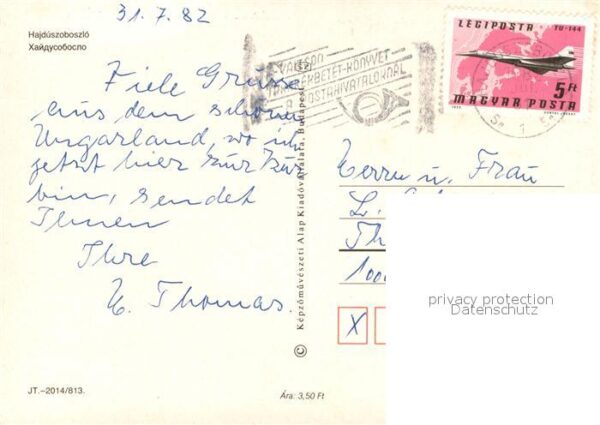 31.7.82
Hajdúszoboszló
Хайдусобосло
Viele Grüsse
aus dem schönen
Ungarland, wo ich
jetzt hier zur Kur
bin, sendet
Ihnen
Ihre
H. Thomas.
JT.–2014/813.
Ára: 3,50 Ft
© Képzőművészeti Alap Kiadóvállalata, Budapest
VÁLTSON
TAKARÉKBETÉT-KÖNYVET
A POSTAHIVATALOKNÁL
LÉGIPOSTA TU-144
5 Ft
MAGYAR POSTA
Herrn u. Frau
L.
Th
1000
X
privacy protection
Datenschutz